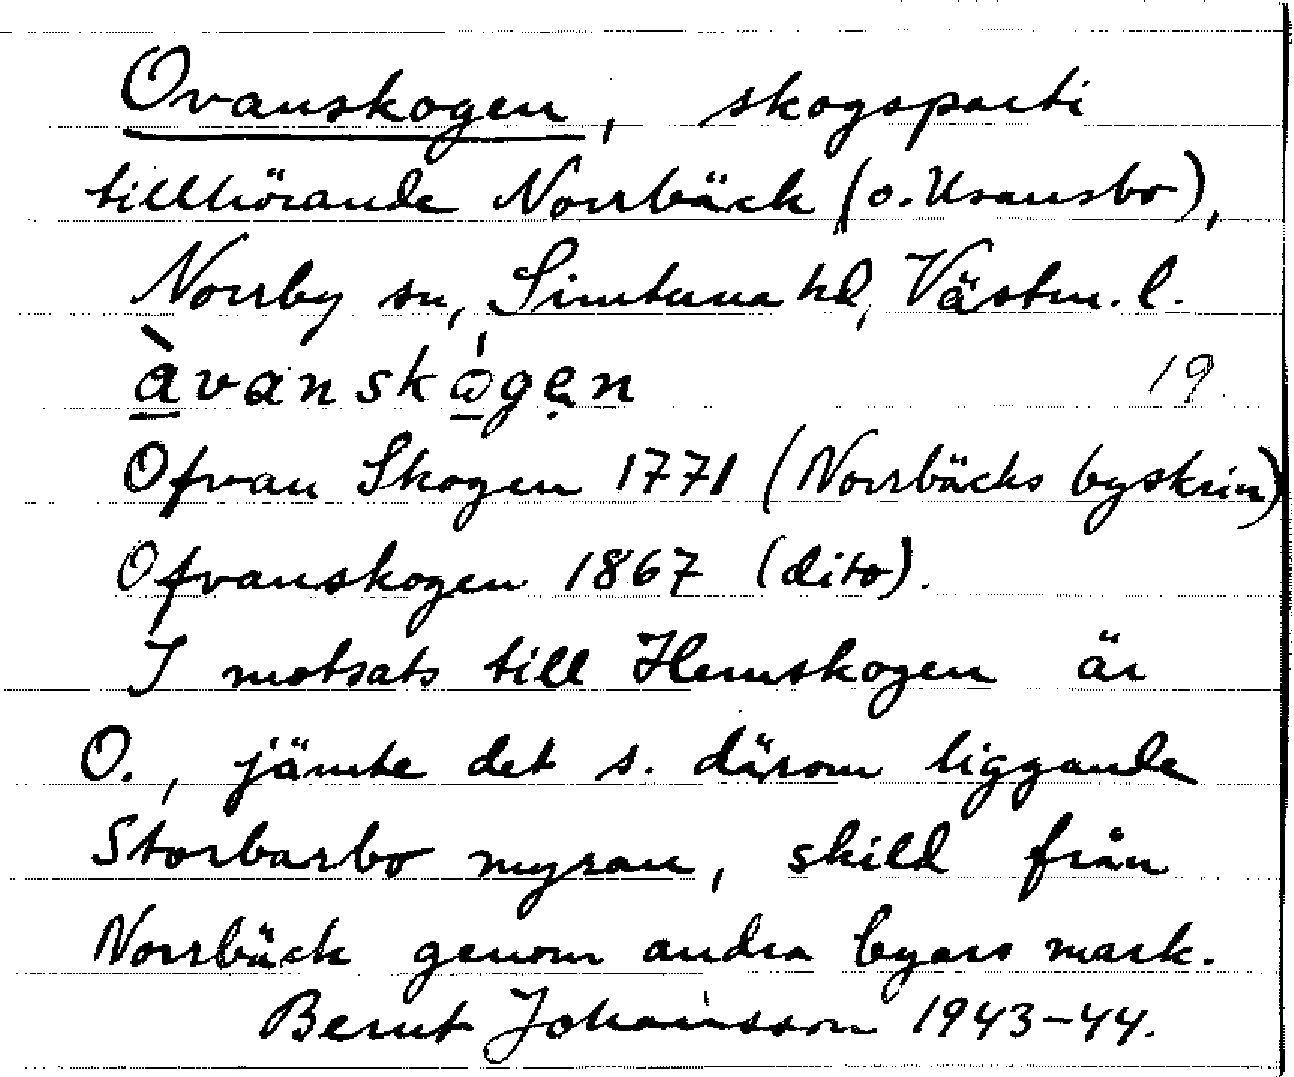 Ovanskogen, skogsparti
tillhörande Norrbäck (o. Usansbo),
Norrby sn, Simtuna hd, Västm. l.
àvanskógen 19
Ofvan Skogen 1771 (Norrbäcks byskrin)
Ofvanskogen 1867 (dito).
I motsats till Hemskogen är
O., jämte det s. därom liggande
Storbarbo myran, skild från
Norrbäck genom andra byars mark.
Bernt Johansson 1943-44.